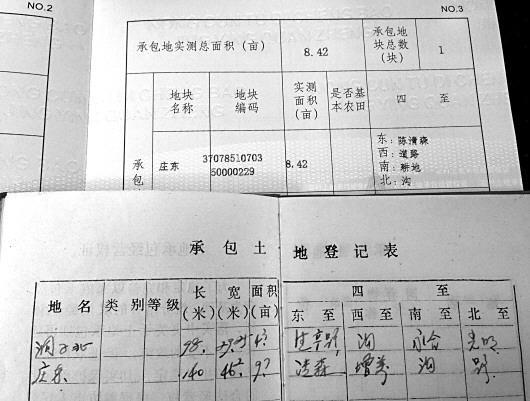 NO.2
NO.3
承包地实测总面积（亩） 8.42 承包地块总数（块） 1
地块名称 地块编码 实测面积（亩） 是否基本农田 四 至
承包 庄东 3707851070350000229 8.42
东：陈清森
西：道路
南：耕地
北：沟
承包土地登记表
地名 类别 等级 长（米） 宽（米） 面积（亩） 四至
东至 西至 南至 北至
98. 沟
庄东 140 46² 9² 浩森 增美 沟